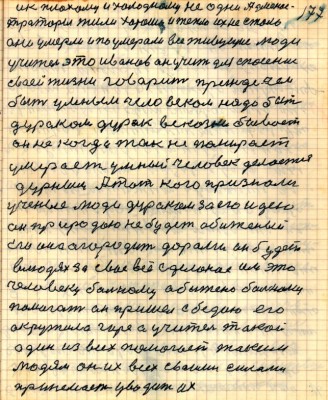 ик плохому и холодному не одни Админи- 177
страторы жили хорошо и тепло их не стало
они умерли и поумерали все живущие люди
учител это Иванов он учит для спосение
своей жизни говарит прежде чем
быт умным человеком надо быт
дураком дурак веками бывает
он не когда так не помирает
умерает умный человек делается
дурным А тот кого признали
ученые люди дураком за его идею
он природаю не будет обиженый
его она огородит дорами он будет
в людях за свае всё сделоное им это
человеку балному обижено балному
помогат он пришел с бедою его
окружила горе а учител такой
один из всех помогает таким
людям он их всех своими силами
принемает уводит их